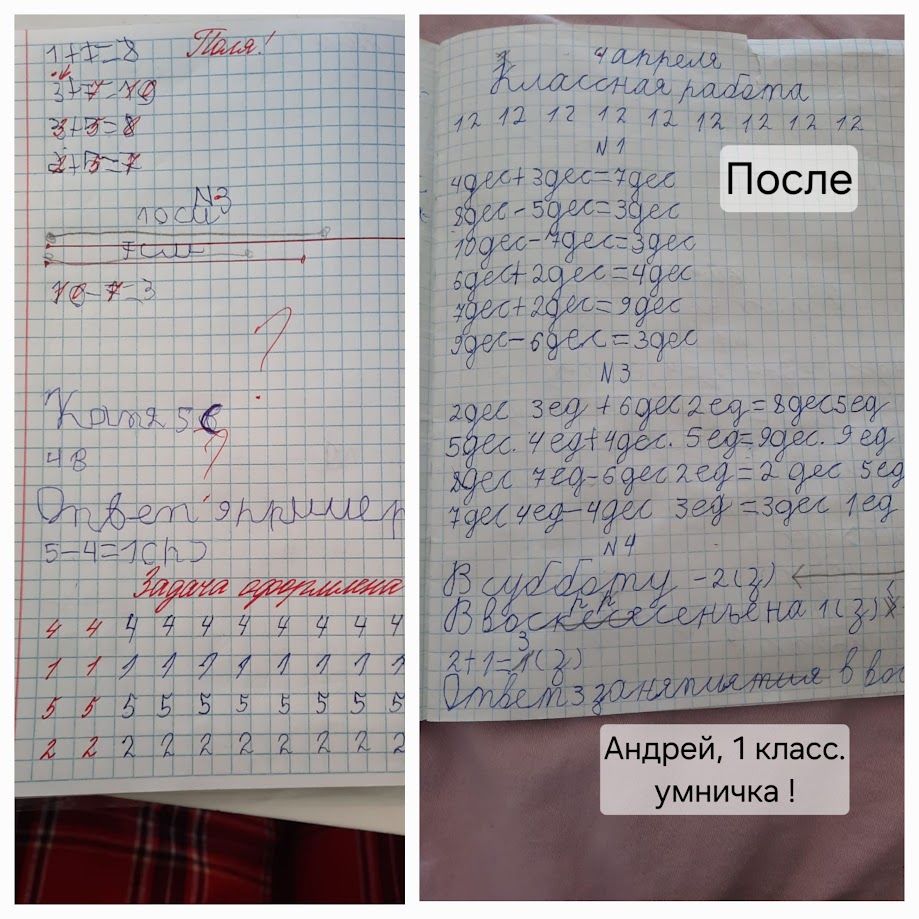 Поля!
1+7=8
3+7=10
3+5=8
2+5=7
N3
10см
7см
10-7=3
?
Катя 5
?
4 В
Ответ
5-4=1(р)
Задача оформлена
4 4 4 4 4 4 4 4 4 4
1 1 1 1 1 1 1 1 1 1
5 5 5 5 5 5 5 5 5 5
2 2 2 2 2 2 2 2 2 2
4 апреля
Классная работа
12 12 12 12 12 12 12 12 12
N1
После
4дес+3дес=7дес
8дес-5дес=3дес
10дес-7дес=3дес
6дес+2дес=4дес
7дес+2дес=9дес
9дес-6дес=3дес
N3
2дес 3ед+6дес2ед=8дес5ед
5дес. 4ед+4дес. 5ед=9дес. 9ед
8дес 7ед-6дес2ед=2 дес 5ед
7дес4ед-4дес 3ед=3дес 1ед
N4
В субботу -2(з)
В на 1(з)
2+1=3(з)
Ответ3 в вос
Андрей, 1 класс.
умничка !